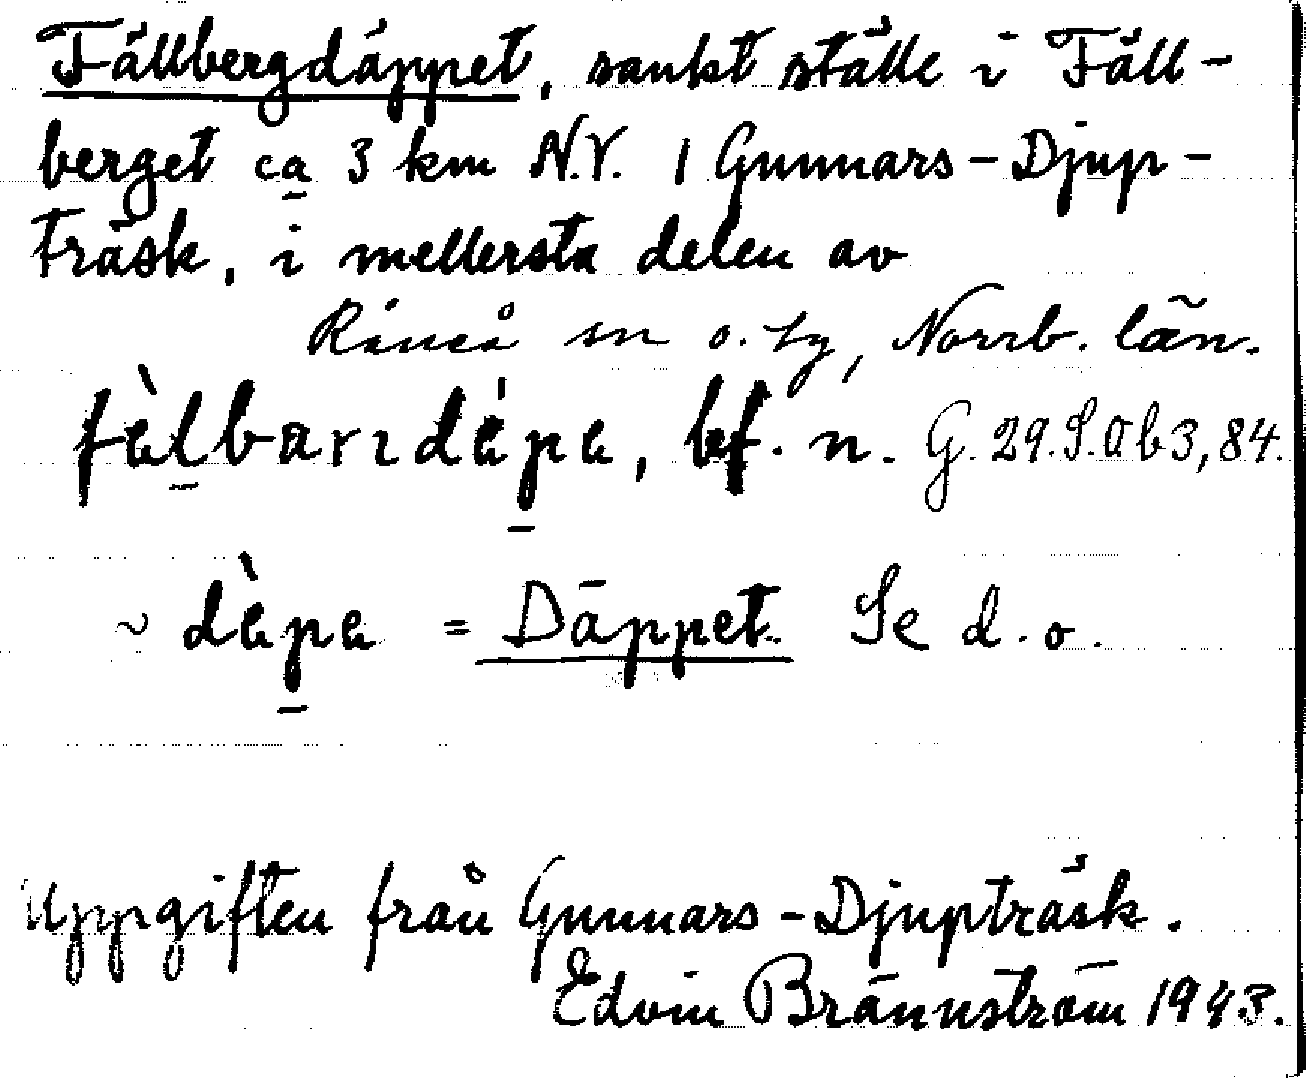 Fällbergdäppet, sankt ställe i Fäll-
berget ca 3 km N.V. / Gunnars-Djup-
träsk, i mellersta delen av
Råneå sn o. tg, Norrb. län.
fàlbarɿdápa, bf. n. G. 29.S.a b 3, 84.
~ dàpa = Däppet. Se d. o.
Uppgiften från Gunnars-Djupträsk.
Edvin Brännström 1943.